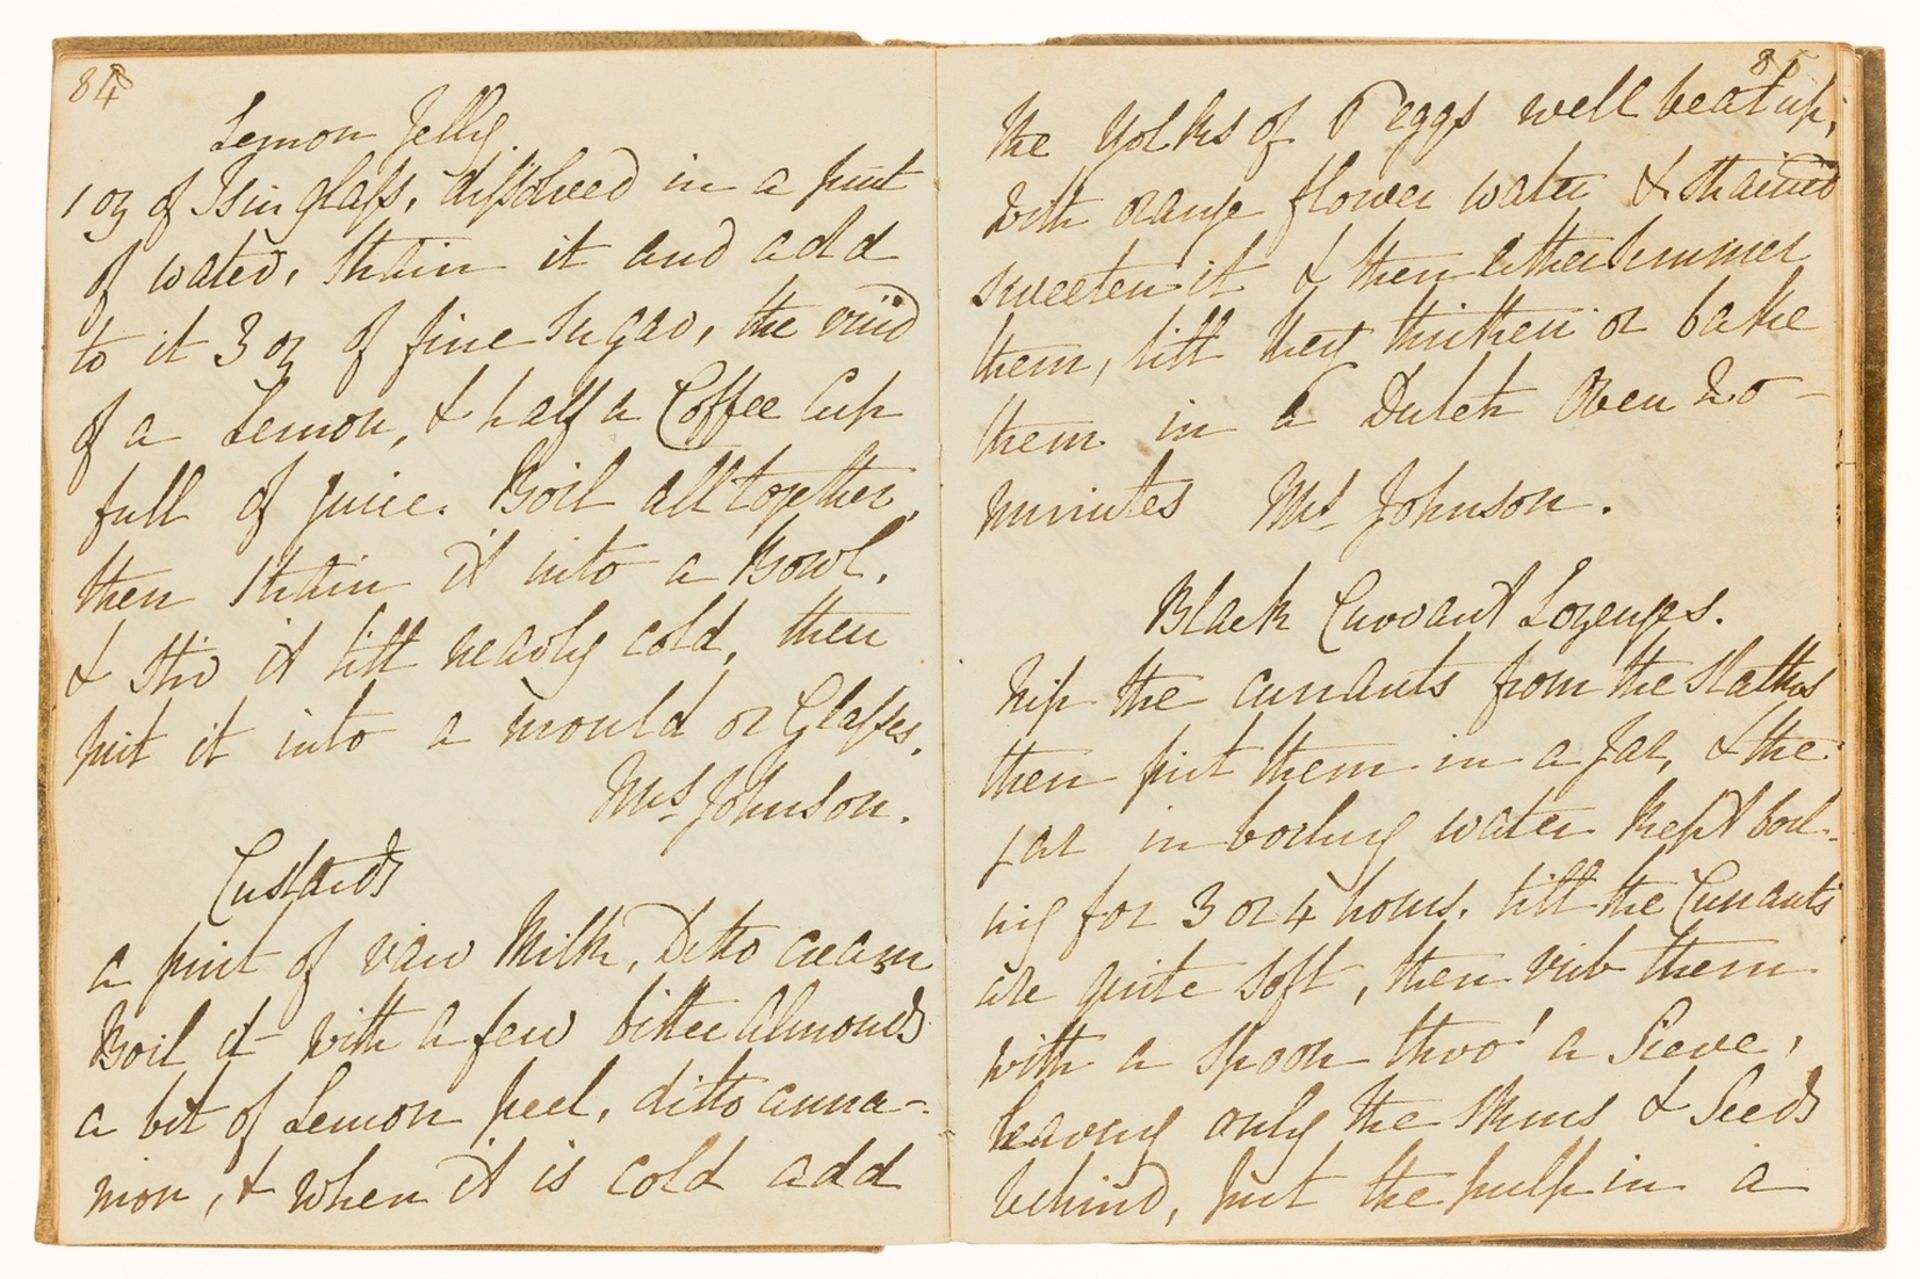 84
Lemon Jelly.
1 oz of Isinglass, dissolved in a pint
of water, strain it and add
to it 3 oz of fine sugar, the rind
of a Lemon, & half a Coffee Cup
full of juice. Boil all together,
then strain it into a Bowl,
& stir it till nearly cold, then
put it into a mould or Glasses.
Mrs Johnson.
Custards
a pint of raw Milk, Ditto cream
Boil it with a few bitter almonds
a bit of Lemon peel, ditto cinna-
mon, & when it is cold add
85
the yolks of eggs well beat up,
with orange flower water & strained
sweeten it & then either simmer
them, till they thicken or bake
them in a Dutch Oven 20
minutes Mrs Johnson.
Black Currant Lozenges.
Nip the currants from the stalks
then put them in a Jar, & the
jar in boiling water kept boil-
ing for 3 or 4 hours. till the Currants
are quite soft, then rub them
with a spoon thro' a Sieve,
leaving only the skins & Seeds
behind, put the pulp in a